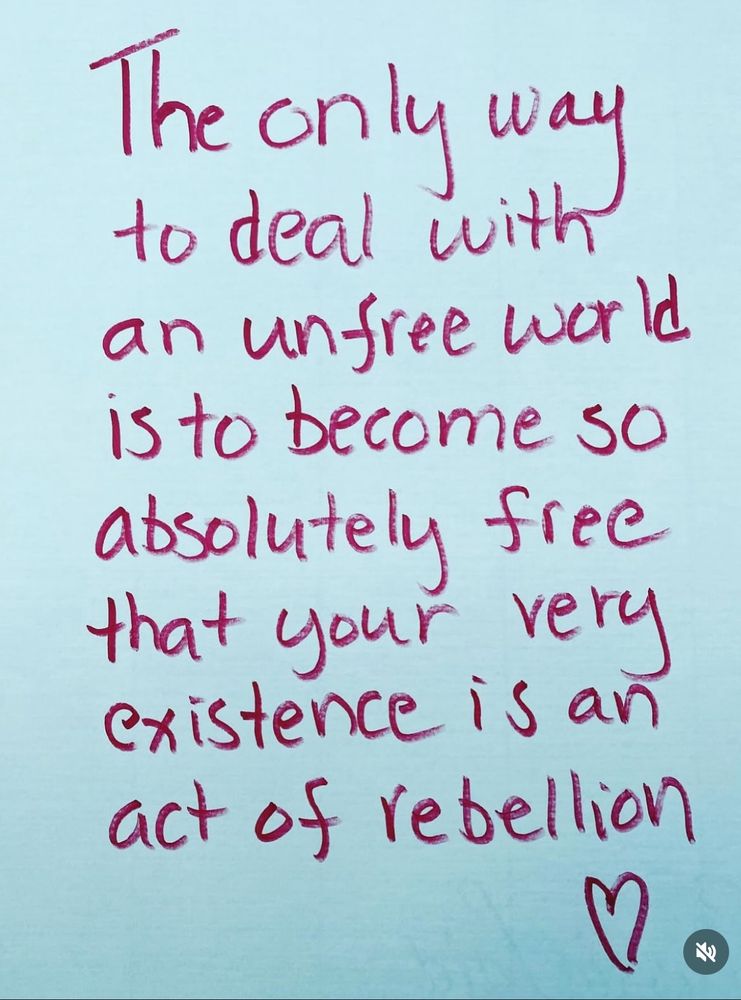 The only way
to deal with
an unfree world
is to become so
absolutely free
that your very
existence is an
act of rebellion